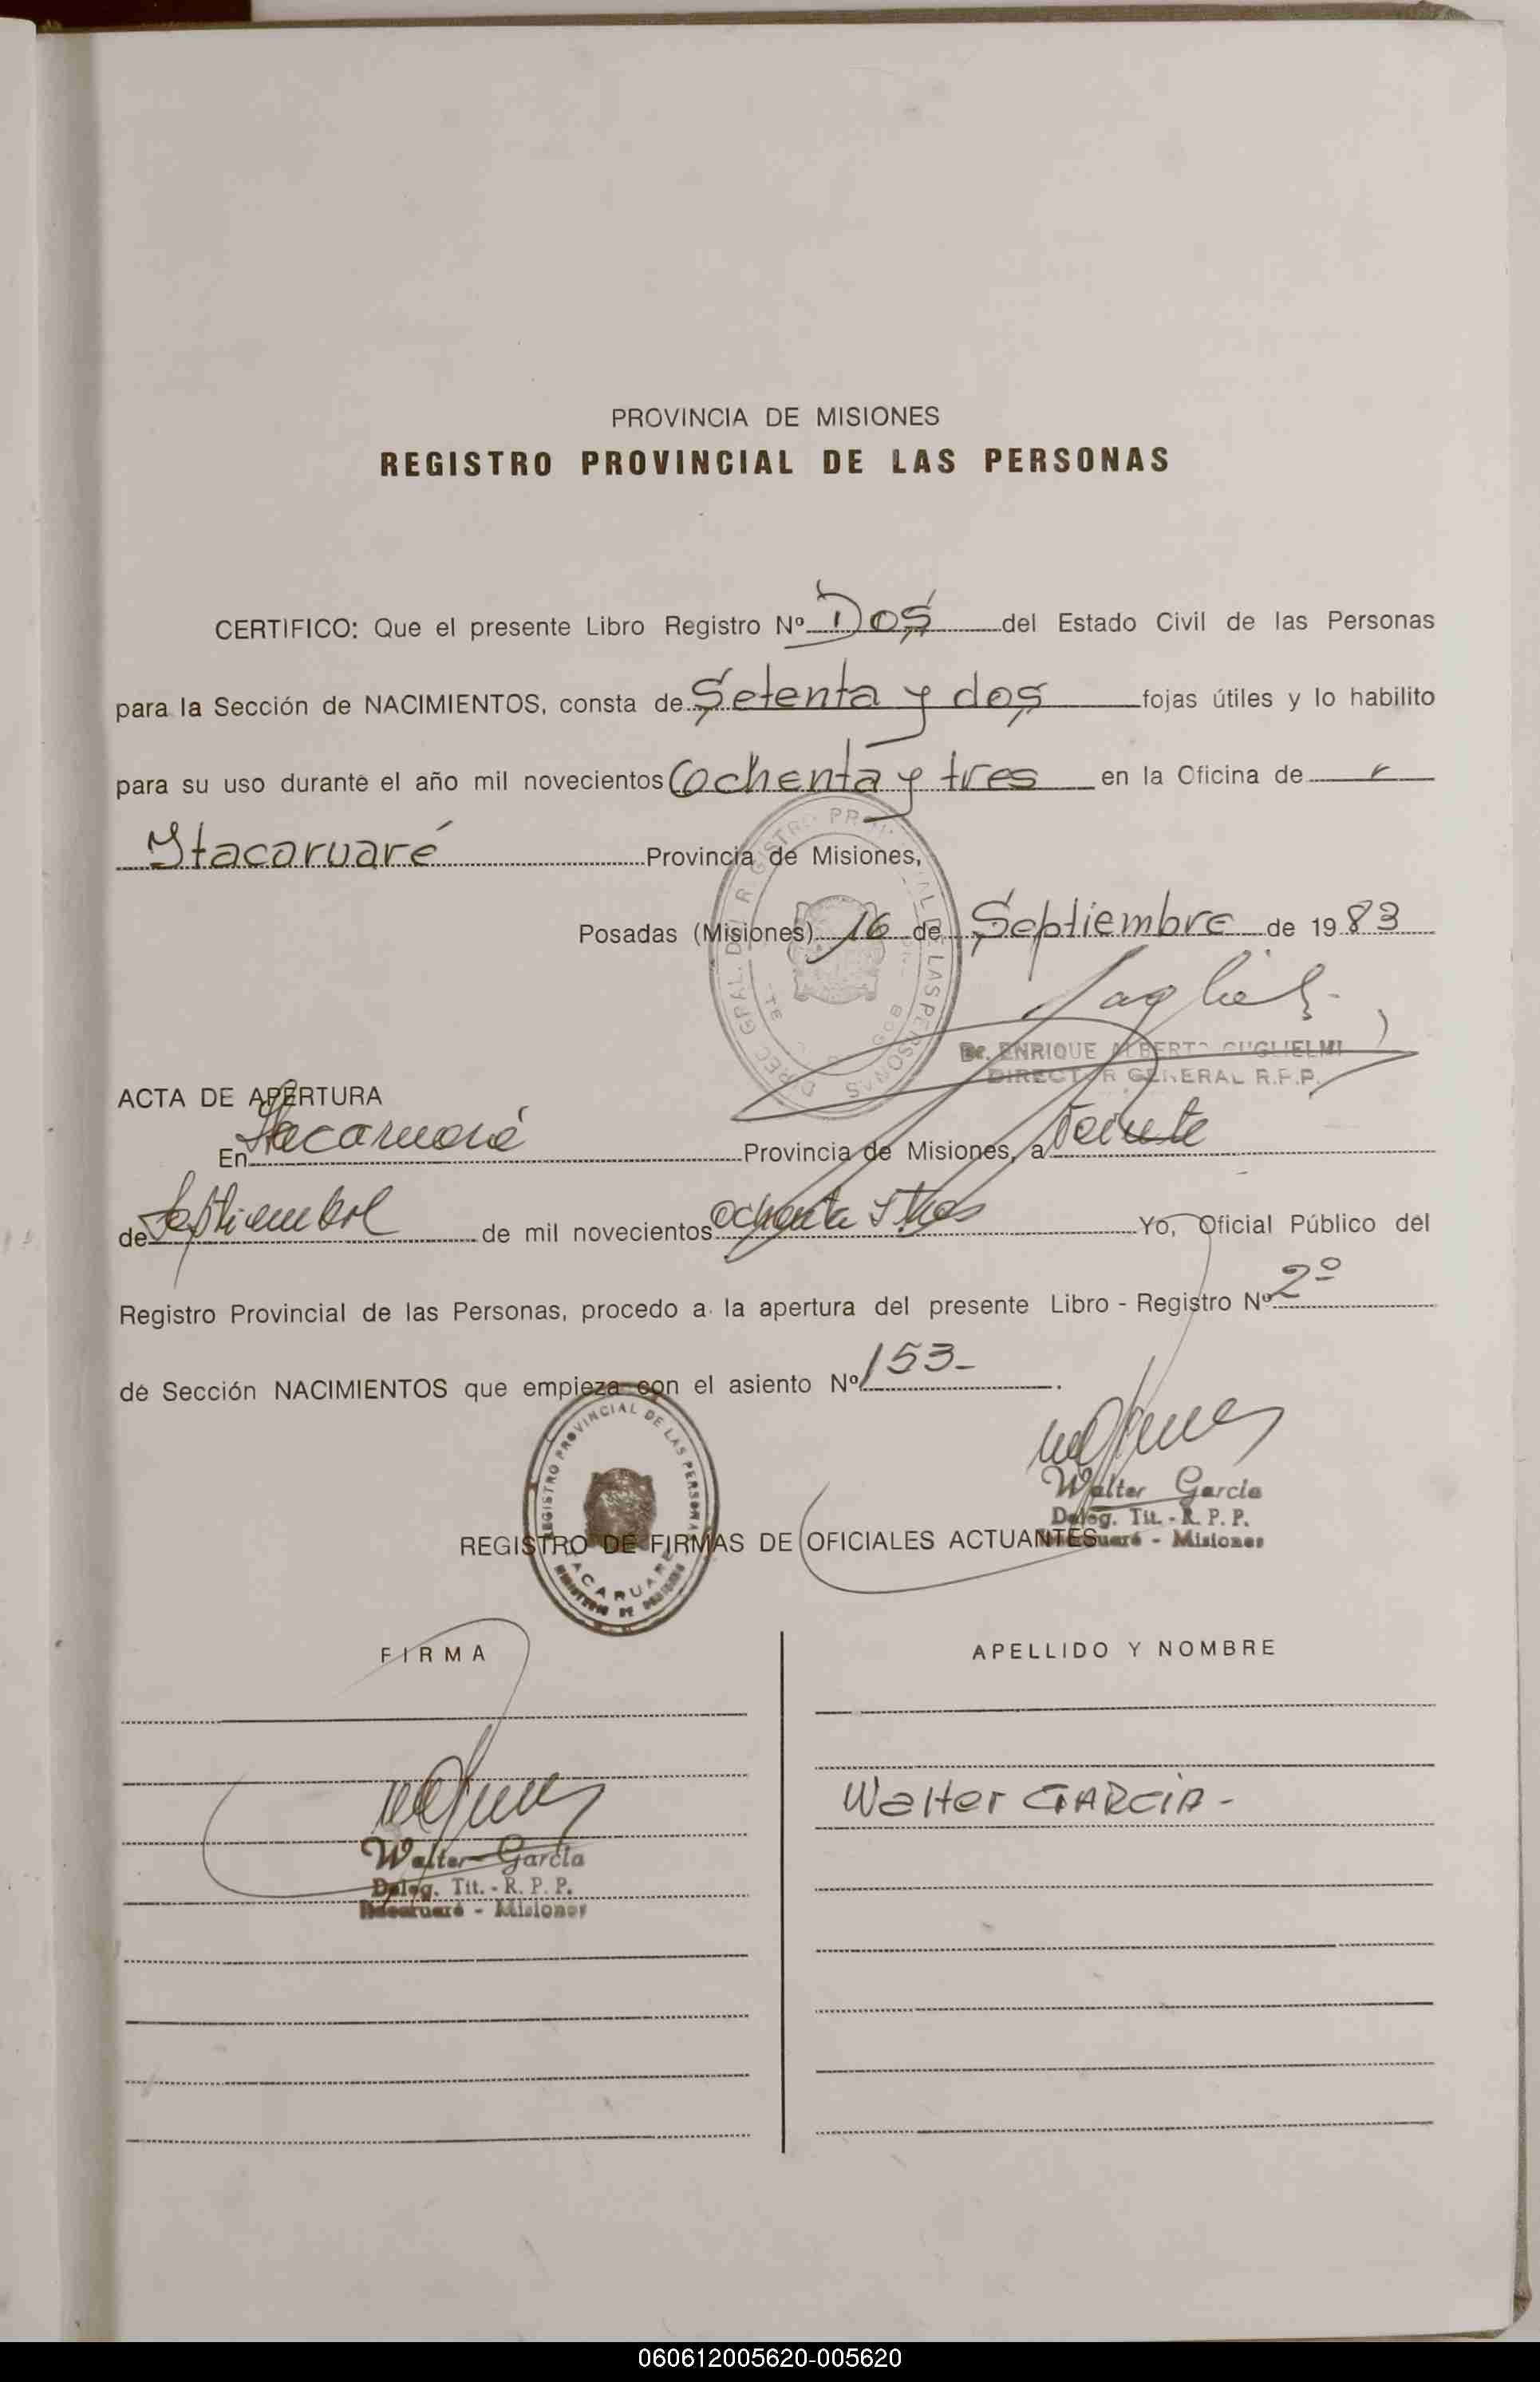 PROVINCIA DE MISIONES
REGISTRO PROVINCIAL DE LAS PERSONAS
CERTIFICO: Que el presente Libro Registro Nº Dos del Estado Civil de las Personas
para la Sección de NACIMIENTOS, consta de Setenta y dos fojas útiles y lo habilito
para su uso durante el año mil novecientos ochenta y tres en la Oficina de
Itacaruaré Provincia de Misiones,
Posadas (Misiones) 16 de Septiembre de 1983
Dr. ENRIQUE ALBERTO GUGLIELMI
DIRECTOR GENERAL R.P.P.
ACTA DE APERTURA
En Itacaruaré Provincia de Misiones, a Veinte
de Septiembre de mil novecientos ochenta y tres Yo, Oficial Público del
Registro Provincial de las Personas, procedo a la apertura del presente Libro - Registro Nº 2º
de Sección NACIMIENTOS que empieza con el asiento Nº 153-
REGISTRO PROVINCIAL DE LAS PERSONAS
ITACARUARE
Walter García
Deleg. Tit. - R. P. P.
Itacaruaré - Misiones
REGISTRO DE FIRMAS DE OFICIALES ACTUANTES
FIRMA APELLIDO Y NOMBRE
Walter GARCIA -
Walter García
Deleg. Tit. - R. P. P.
Itacaruaré - Misiones
060612005620-005620